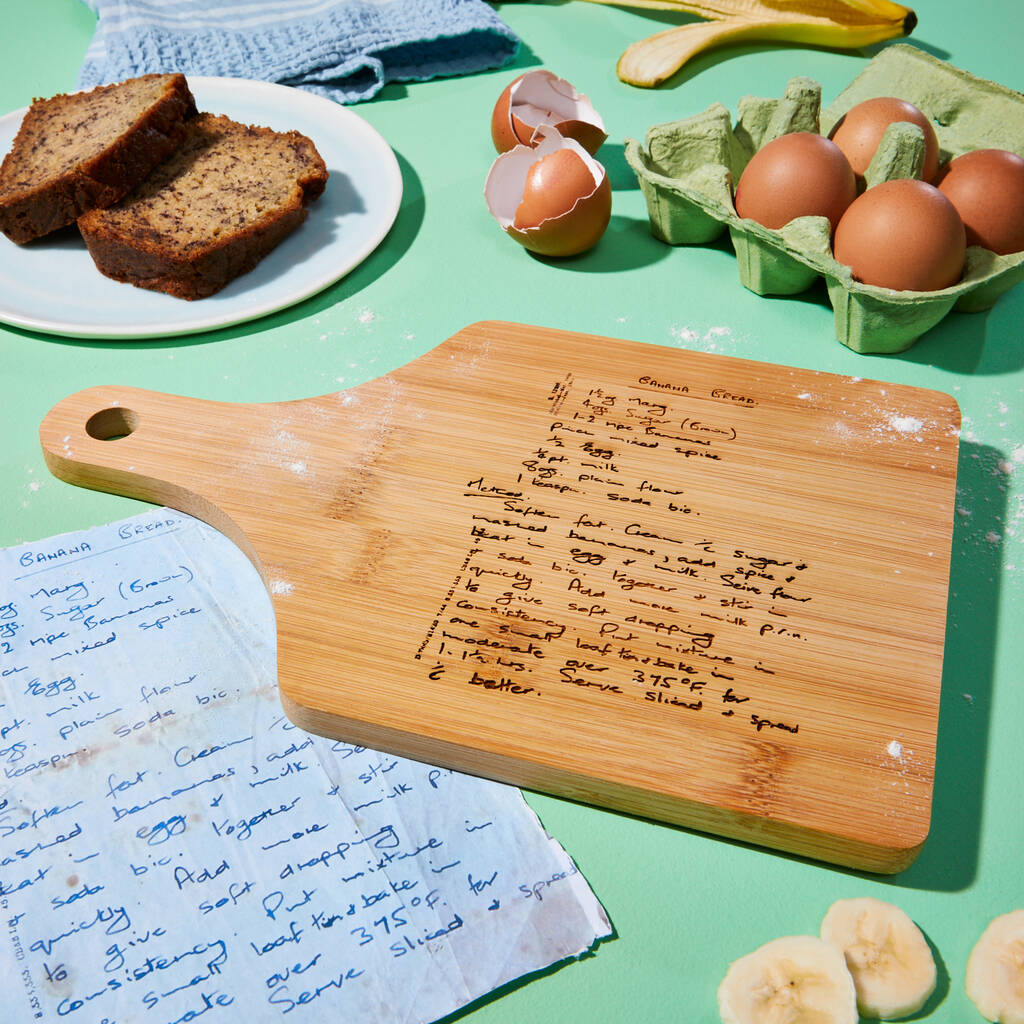 BANANA BREAD.
1½og Marg.
4ozs. Sugar (Brown)
1-2 ripe Bananas
Pinch mixed spice
½ Egg.
¼pt. milk
8ozs. plain flour
1 teaspn. soda bic.
Method.
Soften fat. Cream c̄ sugar &
mashed bananas, add spice &
Beat in egg & milk. Seive flour
& soda bic. together & stir in
quickly. Add more milk p.r.n.
to give soft dropping
consistency. Put mixture in
one small loaf tin & bake in
moderate over 375°F. for
1-1½ hrs. Serve sliced & spread
c̄ better.
BANANA BREAD.
ogs Marg.
ogs. Sugar (Brown)
2 ripe Bananas
mixed spice
Egg.
pt. milk
ogs. plain flour
teaspn. soda bic.
Soften fat. Cream c̄
mashed bananas, add
Beat in egg & milk. Se
soda bic. together & stir
quickly. Add more milk p.r.n
to give soft dropping
consistency. Put mixture in
small loaf tin & bake in
rate over 375°F. for
Serve sliced & spread